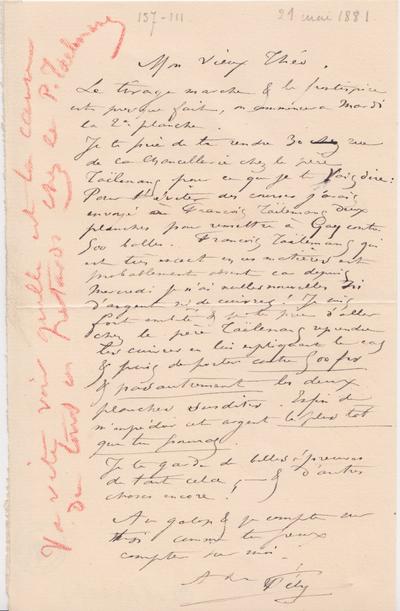 157-III
21 mai 1881
Mon vieux Théo.
Le tirage marche & le frontispice
est presque fait, on commencera Mardi
la 2e planche.
Je te prie de te rendre 30 rue
de la Chancellerie chez le père
Taëlemans pour ce que je te vais dire:
Pour t'éviter des courses j'avais
envoyé à François Taëlemans deux
planches pour remettre à Gay contre
500 balles. François Taëlemans qui
est très exact en ces matières est
probablement absent car depuis
Mercredi je n'ai nulles nouvelles ni
d'argent ni de cuivres! Je suis
fort embêté & je te prie d'aller
chez le père Taëlemans reprendre
les cuivres en lui expliquant le cas
& puis de porter contre 500 frs
& pas autrement les deux
planches susdites. Enfin de
m'expédier cet argent le plus tôt
que tu pourras
Je te garde de belles épreuves
de tout cela, & d'autres
choses encore!
Au galop & je compte sur
toi comme tu peux
compter sur moi!
A toi
Fély
Va vite voir quelle est la cause
du tout ce retard chez le P. Taëlemans